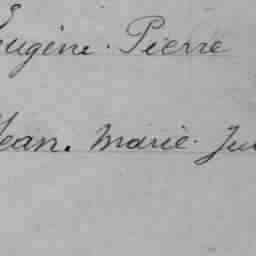 Eugène. Pierre
Jean. Marie.